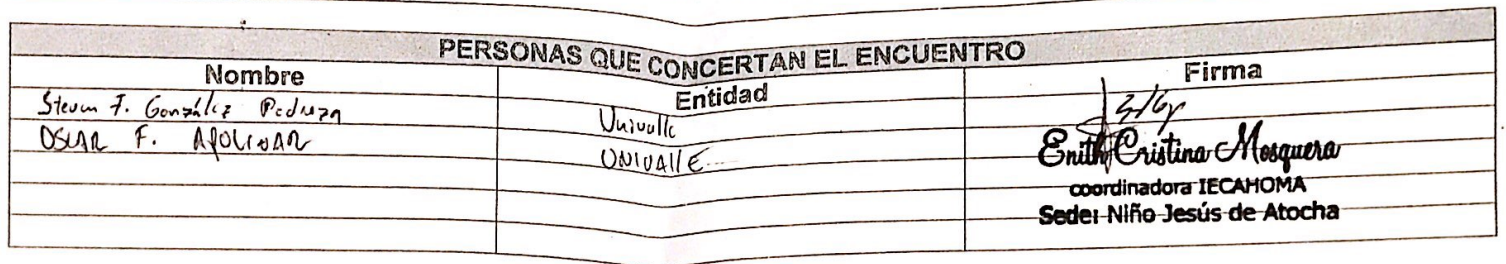 PERSONAS QUE CONCERTAN EL ENCUENTRO
Nombre Entidad Firma
Steven F. González Pedroza Univalle
OSCAR F. APOLINAR UNIVALLE
Enith Cristina Mosquera
coordinadora IECAHOMA
Sede: Niño Jesús de Atocha